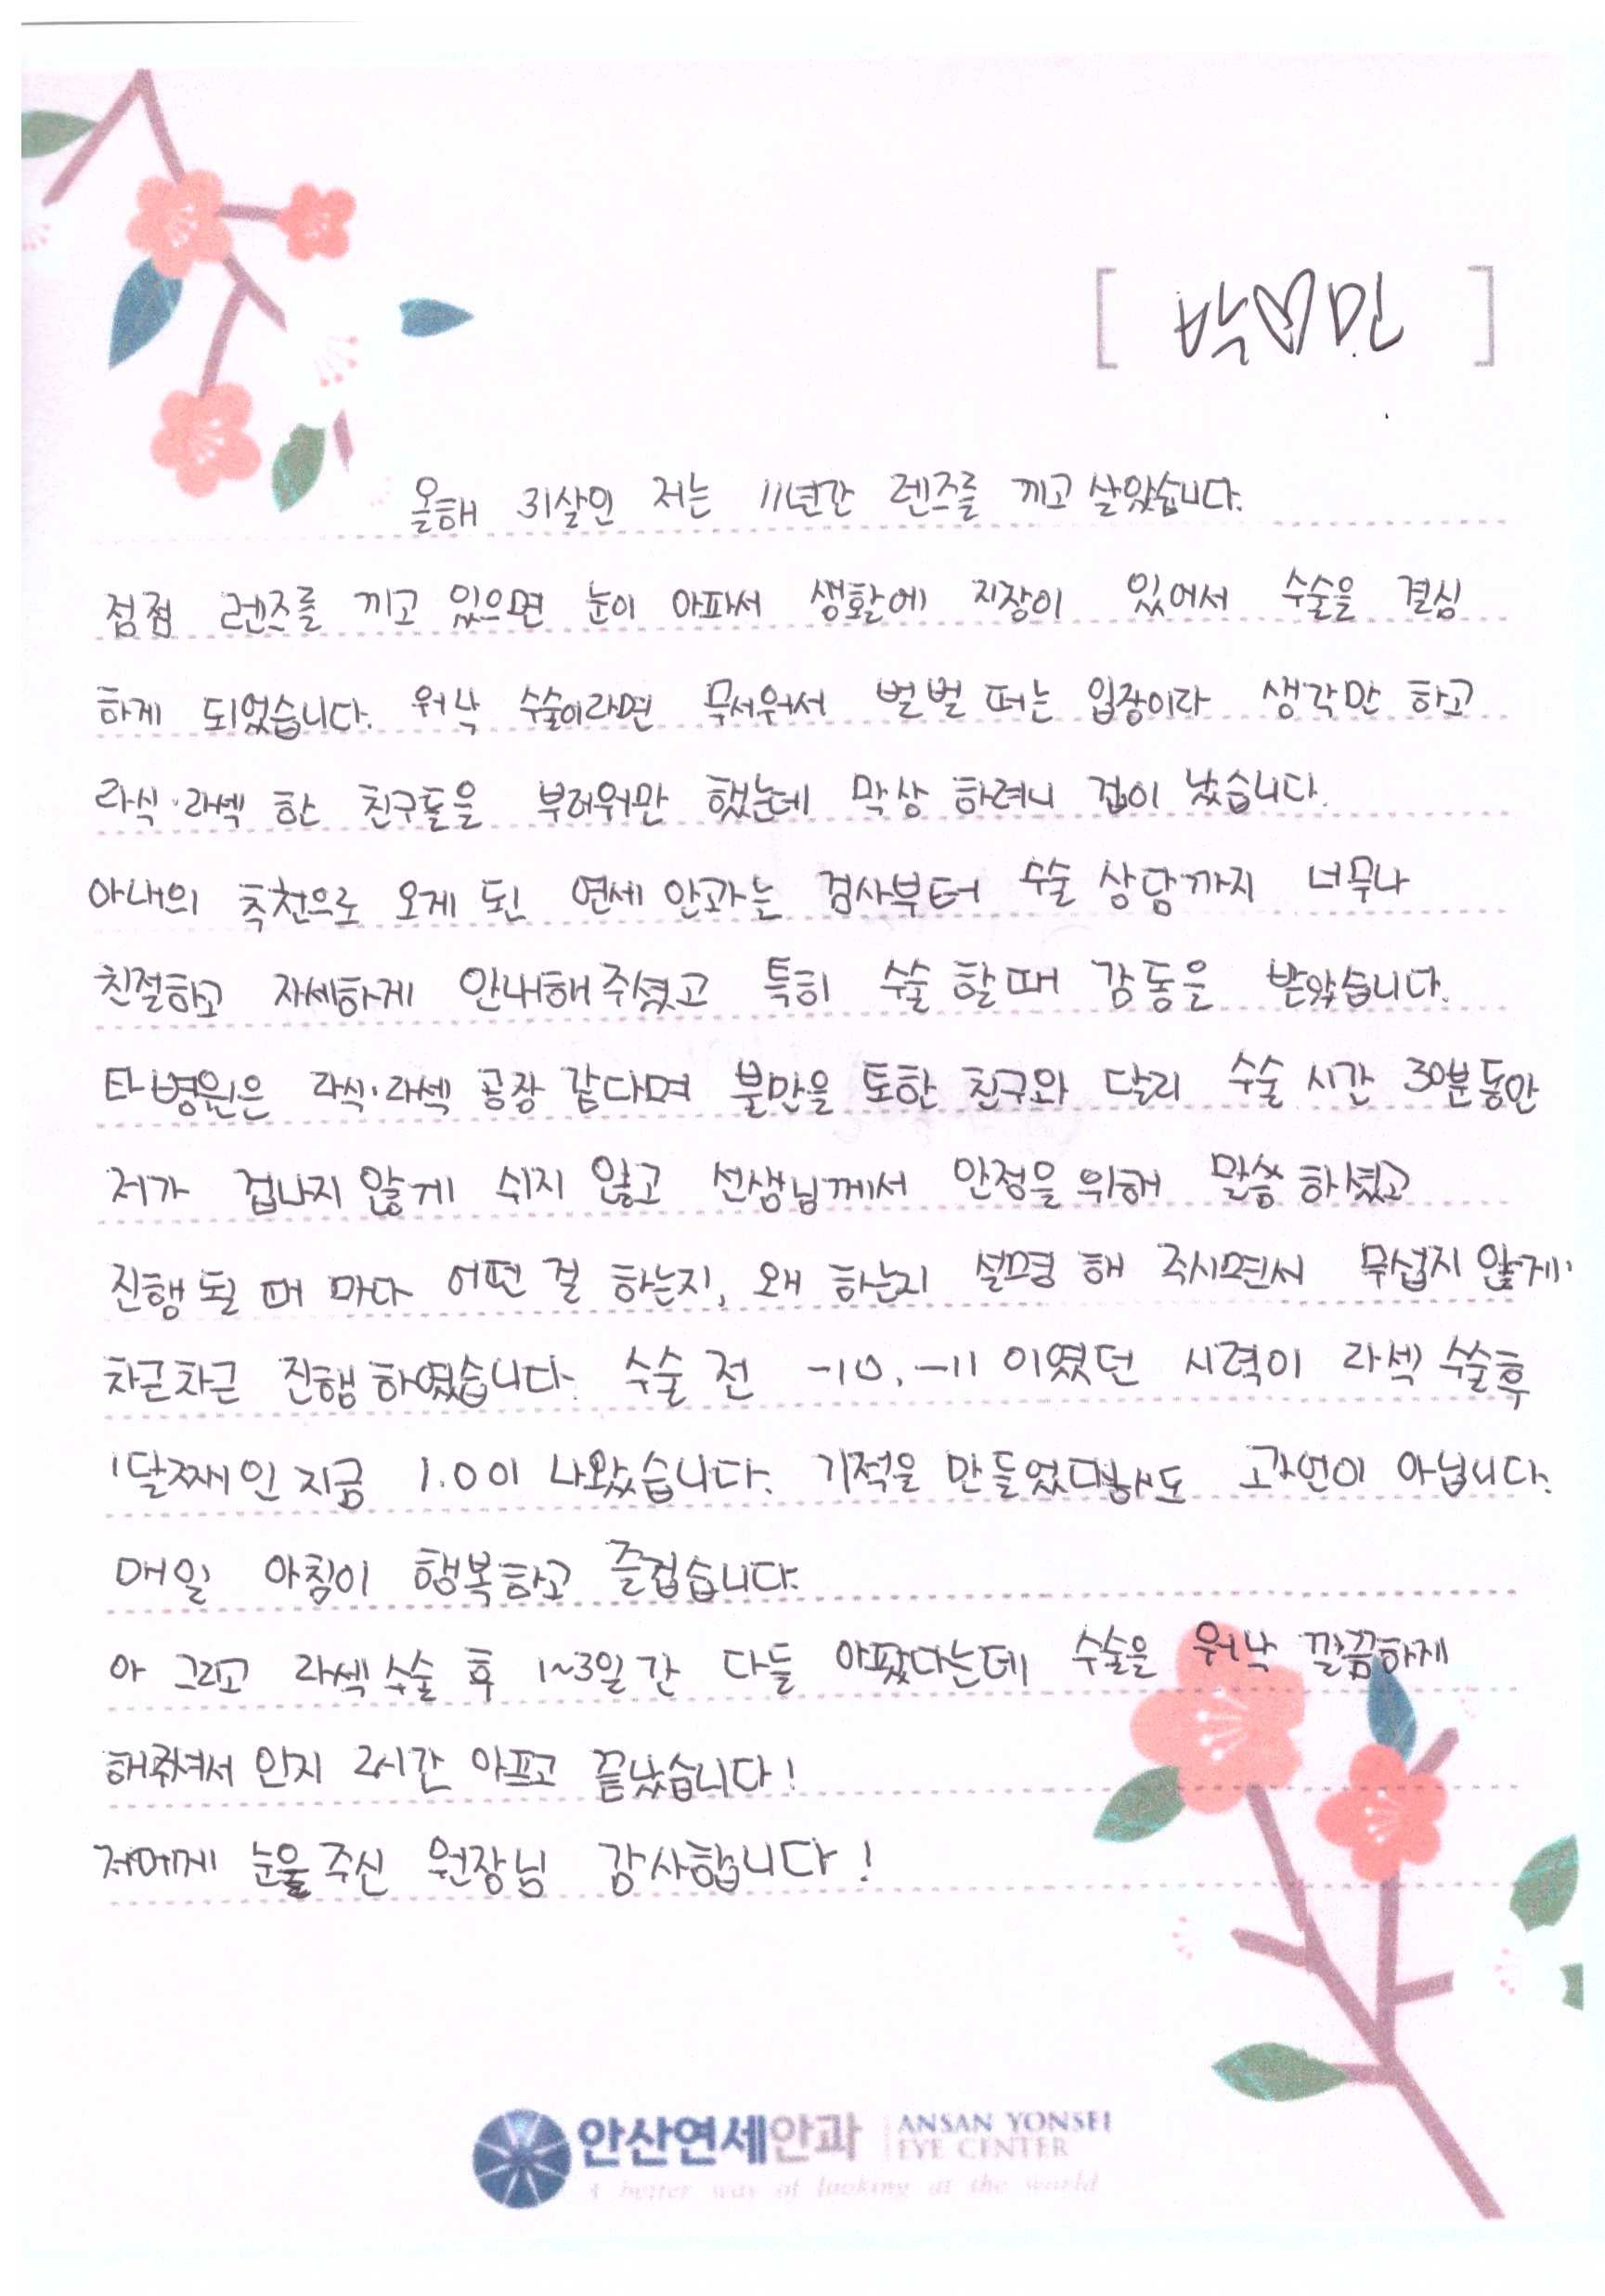 [ 박♡민 ]
올해 31살인 저는 11년간 렌즈를 끼고 살았습니다.
점점 렌즈를 끼고 있으면 눈이 아파서 생활에 지장이 있어서 수술을 결심
하게 되었습니다. 워낙 수술이라면 무서워서 벌벌 떠는 입장이라 생각만 하고
라식·라섹 한 친구들을 부러워만 했는데 막상 하려니 겁이 났습니다.
아내의 추천으로 오게 된 연세 안과는 검사부터 수술 상담까지 너무나
친절하고 자세하게 안내해 주셨고 특히 수술 할 때 감동을 받았습니다.
타병원은 라식·라섹 공장 같다며 불만을 토한 친구와 달리 수술 시간 30분동안
저가 겁나지 않게 쉬지 않고 선생님께서 안정을 위해 말씀 하셨고
진행 될 때 마다 어떤 걸 하는지, 왜 하는지 설명 해 주시면서 무섭지 않게
차근차근 진행 하였습니다. 수술 전 -10, -11 이였던 시력이 라섹 수술후
1달째인 지금 1.0이 나왔습니다. 기적을 만들었다해도 과언이 아닙니다.
매일 아침이 행복하고 즐겁습니다.
아 그리고 라섹 수술 후 1~3일 간 다들 아팠다는데 수술을 워낙 깔끔하게
해주셔서 인지 2시간 아프고 끝났습니다!
저에게 눈을 주신 원장님 감사합니다!
안산연세안과 ANSAN YONSEI
EYE CENTER
A better way of looking at the world